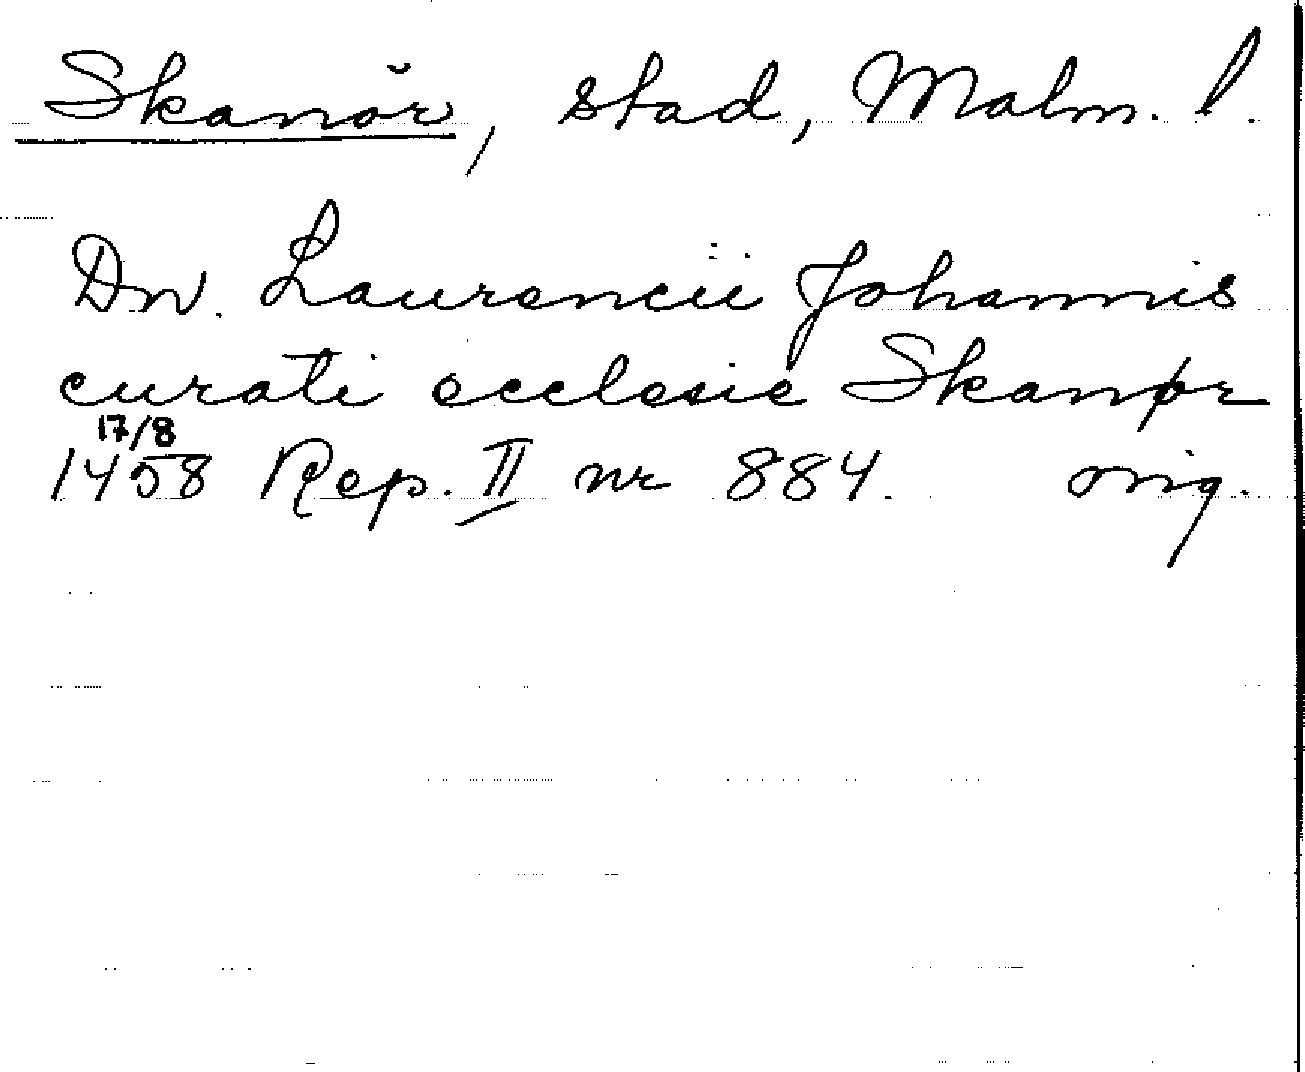 Skanör, stad, Malm. l.
Dn. Laurencii Johannis
curati ecclesie Skanør
17/8
1458 Rep. II nr 884. orig.